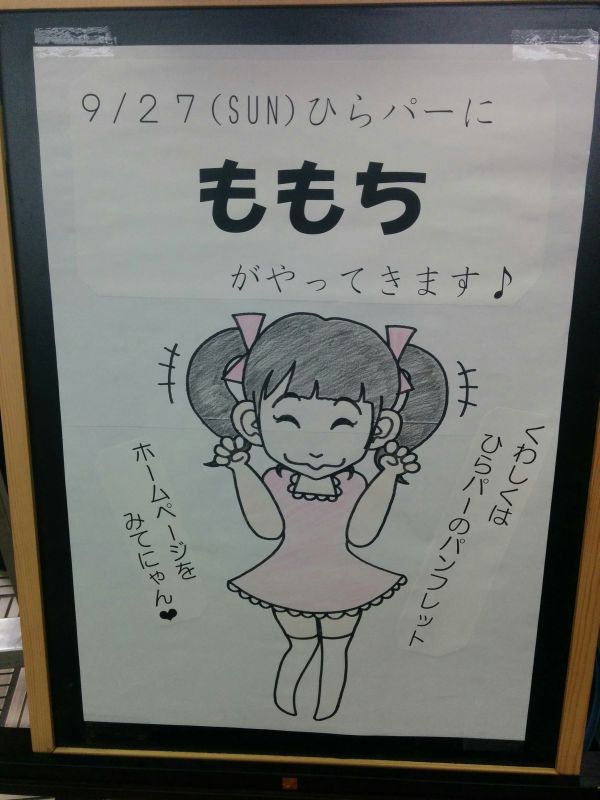 ９/２７(SUN)ひらパーに
ももち
がやってきます♪
くわしくは
ひらパーのパンフレット
ホームページを
みてにゃん❤